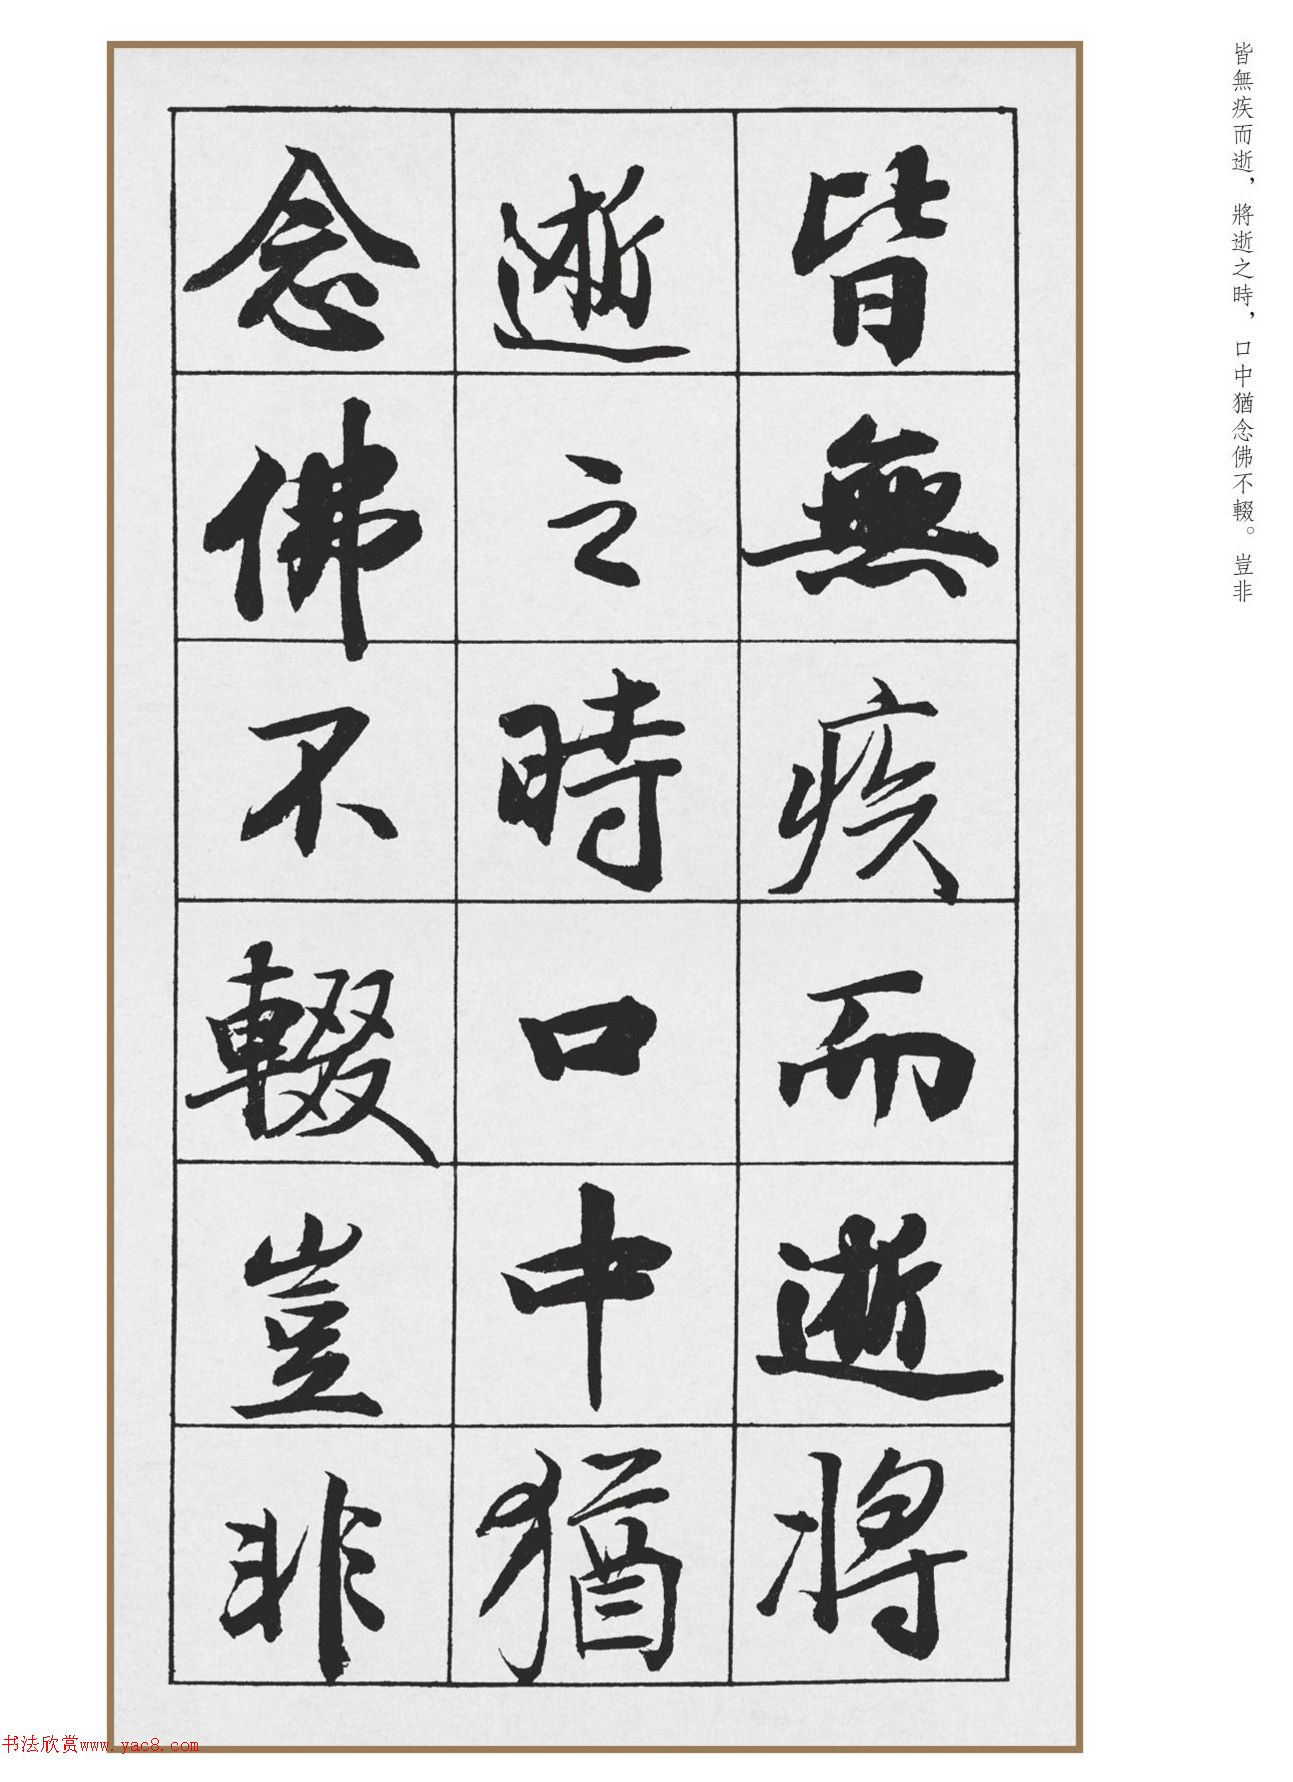 皆無疾而逝，將逝之時，口中猶念佛不輟。豈非
皆無疾而逝將
逝之時口中猶
念佛不輟豈非
书法欣赏www.yac8.com